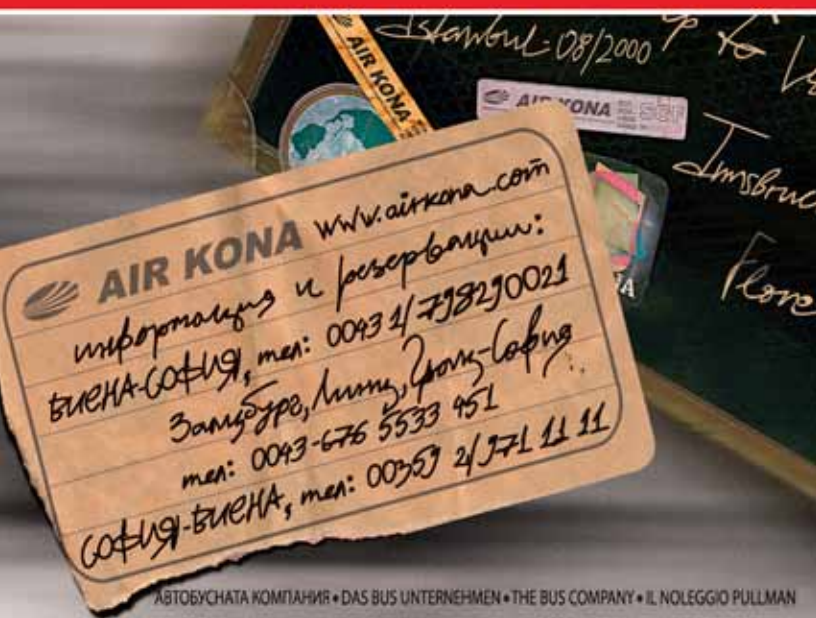 Istanbul-08/2000
AIR KONA
AIR KONA
AIR KONA www.airkona.com
информация и резервации:
ВИЕНА-СОФИЯ, тел: 0043 1/798290021
Залцбург, Линц, Грац-София
тел: 0043-676 5533 451
СОФИЯ-ВИЕНА, тел: 00359 2/971 11 11
АВТОБУСНАТА КОМПАНИЯ • DAS BUS UNTERNEHMEN • THE BUS COMPANY • IL NOLEGGIO PULLMAN